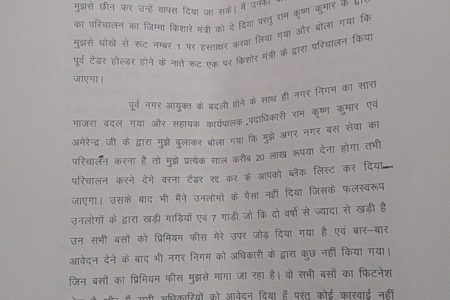 मुझसे छीन कर उन्हें वापस दिया जा सके। मैं उनका
का परिचालन का जिम्मा किशोर मंत्री को दे दिया परंतु राम कृष्ण कुमार के द्वारा
मुझसे धोखे से रूट नम्बर 1 पर हस्ताक्षर करवा लिया गया और बोला गया कि
पूर्व टेंडर होल्डर होने के नाते रूट एक पर किशोर मंत्री के द्वारा परिचालन किया
जाएगा।
पूर्व नगर आयुक्त के बदली होने के साथ ही नगर निगम का सारा
माजरा बदल गया और सहायक कार्यपालक पदाधिकारी राम कृष्ण कुमार एवं
अमेरेन्द्र जी के द्वारा मुझे बुलाकर बोला गया कि मुझे अगर नगर बस सेवा का
परिचालन करना है तो मुझे प्रत्येक साल करीब 20 लाख रूपया देना होगा तभी
परिचालन करने देंगे वरना टेंडर रद्द कर के आपको ब्लैक लिस्ट कर दिया
जाएगा। उसके बाद भी मैंने उनलोगों के पैसा नहीं दिया जिसके फलस्वरूप
उनलोगों के द्वारा खड़ी गाड़ियों एवं 7 गाड़ी जो कि दो वर्षो से ज्यादा से खड़ी है
उन सभी बसों को प्रिमियम फीस मेरे उपर जोड़ दिया गया है एवं बार–बार
आवेदन देने के बाद भी नगर निगम को अधिकारी के द्वारा कुछ नहीं किया गया।
जिन बसों का प्रिमियम फीस मुझसे मांगा जा रहा है। वो सभी बसों का फिटनेश
सभी अधिकारियों को आवेदन दिया है परंतु कोई कारवाई नहीं